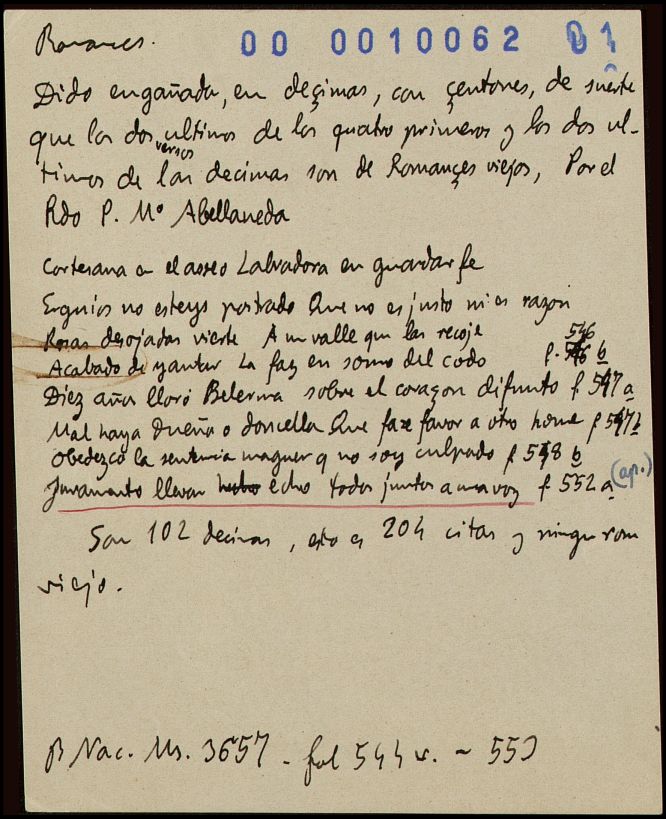 Romances.
00 0010062 01
Dido engañada, en deçimas, con çentones, de suerte
que los dos ultimos versos de los quatro primeros y los dos ul-
timos de las decimas son de Romançes viejos, Por el
Rdo P. Mº Abellaneda
Cortesana en el aseo Labradora en guardar fe
Erguios no esteys postrado Que no es justo ni es razon
Rosas desojadas vierte A un valle que las recoje
Acabado de yantar La faz en somo del codo f. 546 b
Diez años lloró Belerma sobre el coraçon difunto f 547 a
Mal haya dueña o doncella Que faze favor a otro home f 547 b
Obedezco la sentencia maguer q no soy culpado f 548 b
Juramento llevan hecho echo todos juntos a una voz f 552 a (ap.)
Son 102 decimas, esto es 204 citas y ningun rom
viejo.
B Nac. Ms. 3657 - fol 544 v. - 553